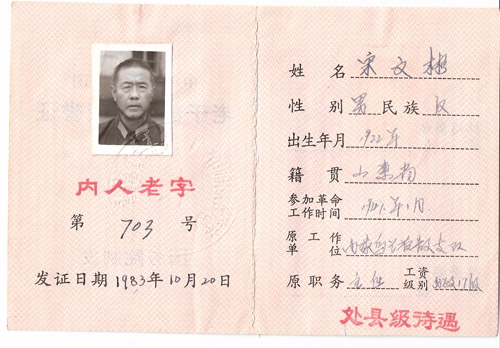 内人老字
第 703 号
发证日期 1983年10月20日
姓名 宋文彬
性别 男 民族 汉
出生年月 1922年
籍贯 山东
参加革命
工作时间 年1月
原工作
单位 内蒙
原职务 主任 工资
级别 17级
处县级待遇